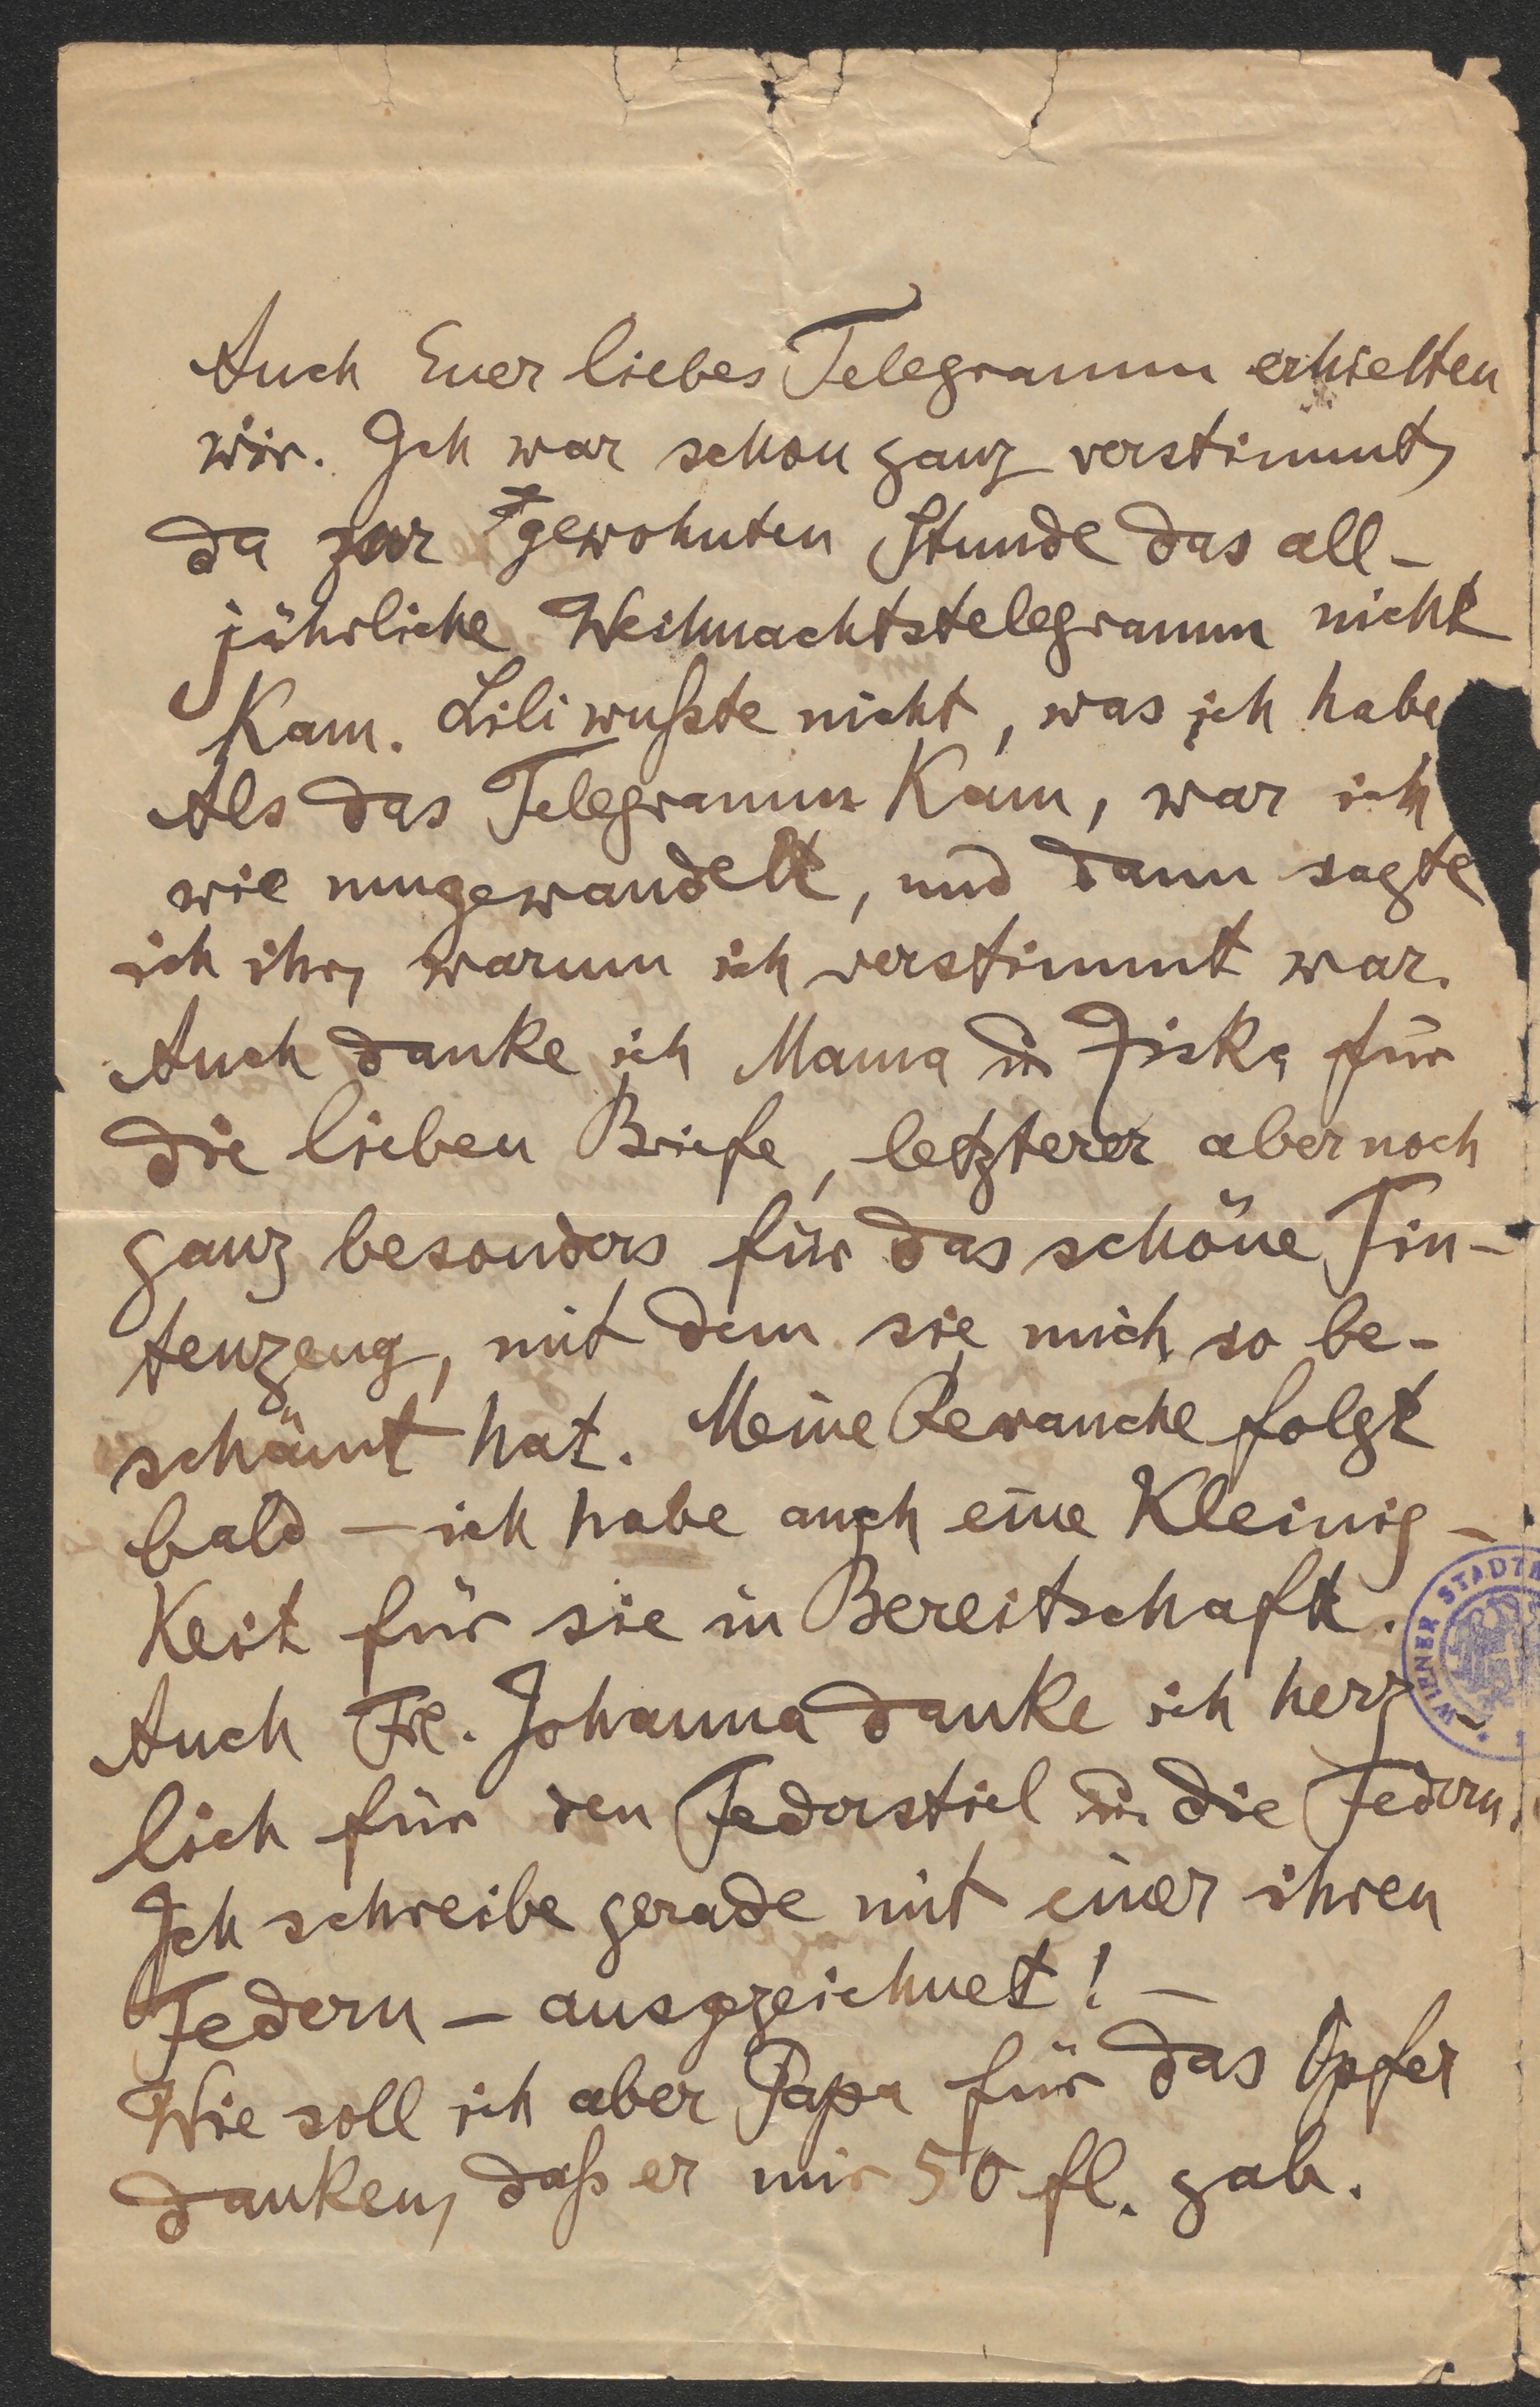 Auch Euer liebes Telegramm erhielten
wir. Ich war schon ganz verstimmt,
da zur gewohnten Stunde das all-
jährliche Weihnachtstelegramm nicht
kam. Lili wußte nicht, was ich habe
Als das Telegramm kam, war ich
wie umgewandelt, und dann sagte
ich ihr, warum ich verstimmt war.
Auch danke ich Mama u Ziska für
die lieben Briefe, letzterer aber noch
ganz besonders für das schöne Tin-
tenzeug, mit dem sie mich so be-
schämt hat. Meine Revanche folgt
bald – ich habe auch eine Kleinig-
keit für sie in Bereitschaft.
Auch Frl. Johanna danke ich herz-
lich für den Federstiel u. die Federn.
Ich schreibe gerade mit einer ihren
Federn – ausgezeichnet! –
Wie soll ich aber Papa für das Opfer
danken, daß er mir 50 fl. gab.
WIENER STADTB